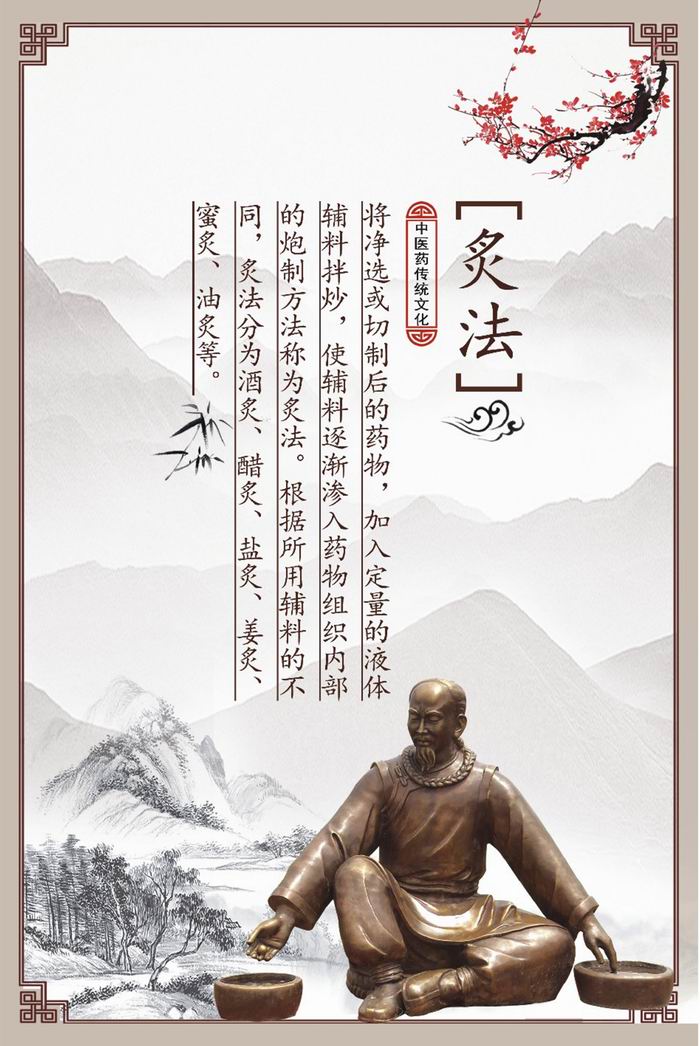 [炙法]
中医药传统文化
将净选或切制后的药物，加入定量的液体
辅料拌炒，使辅料逐渐渗入药物组织内部
的炮制方法称为炙法。根据所用辅料的不
同，炙法分为酒炙、醋炙、盐炙、姜炙、
蜜炙、油炙等。